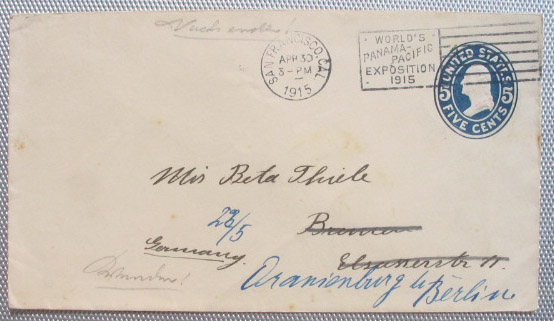 Nachsenden!
SAN FRANCISCO, CAL.
APR 30
5-PM
1915
WORLD'S
PANAMA-
PACIFIC
EXPOSITION
1915
UNITED STATES
5 5
FIVE CENTS
Mis Beta Thiele
23/5
Bremen
Germany.
Oranienburg b/
Berlin.